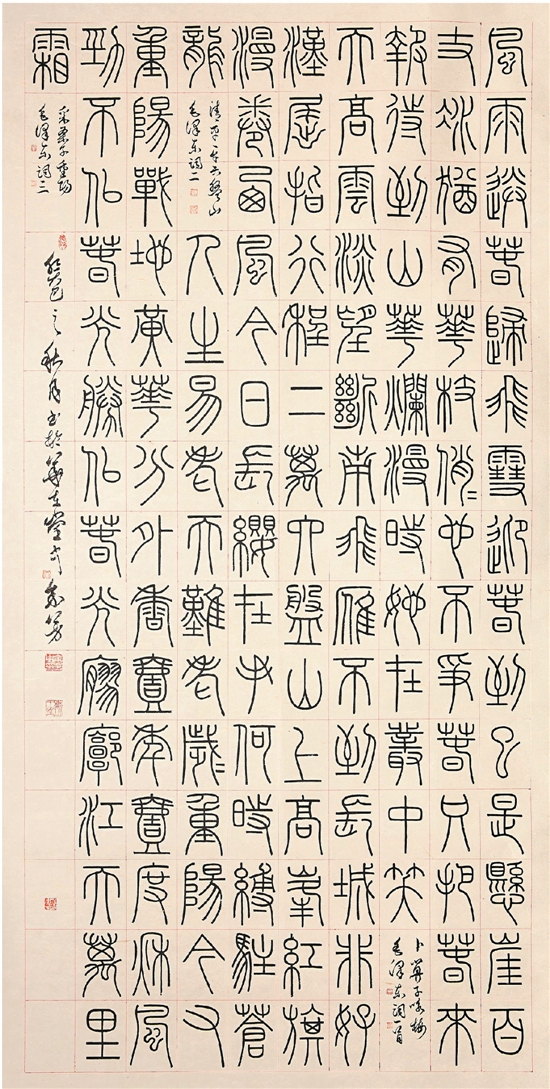 風雨送春歸飛雪迎春到已是懸崖百
丈冰猶有華枝俏〻也不爭春只把春來
報待到山華爛漫時她在叢中笑
卜算子咏梅
毛澤東詞一首
天高雲淡望斷南飛雁不到長城非好
漢屈指行程二萬六盤山上高峯紅旗
漫卷西風今日長纓在手何時縛駐蒼
龍
清平樂六盤山
毛澤東詞二
人生易老天難老歲〻重陽今又
重陽戰地黃華分外香壹年壹度秋風
勁不似春光勝似春光寥廓江天萬里
霜
采桑子重陽
毛澤東詞三
之秋月書於